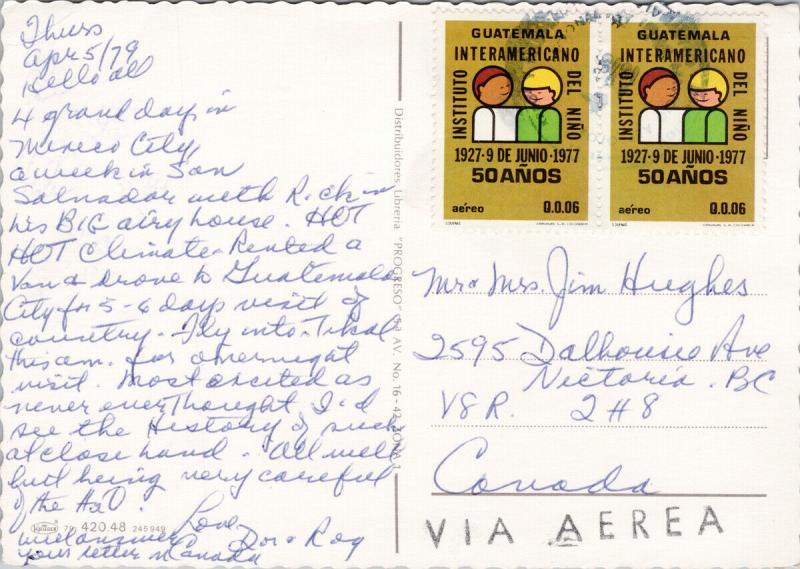 Thurs
Apr 5/79
Hello all
4 grand days in
Mexico City
a week in San
Salvador with Rick in
his BIG airy house. HOT
HOT Climate. Rented a
Van & drove to Guatemala
City for 5-6 days visit of
country. Fly into Tikal
this am. for overnight
visit. Most excited as
never ever Thought I'd
see the History of such
at close hand. All well
but being very careful
of the H2O.
Love
will answer Dor & Roy
your letter in Canada
420.48 245949
Distribuidores Libreria "PROGRESO" 5a AV. No. 16-42 ZONA 1
GUATEMALA
INTERAMERICANO
INSTITUTO
DEL NIÑO
1927·9 DE JUNIO·1977
50 AÑOS
aéreo Q.0.06
GUATEMALA
INTERAMERICANO
INSTITUTO
DEL NIÑO
1927·9 DE JUNIO·1977
50 AÑOS
aéreo Q.0.06
Mr & Mrs. Jim Hughes
2595 Dalhousie Ave
Victoria. BC
V8R. 2H8
Canada
VIA AEREA